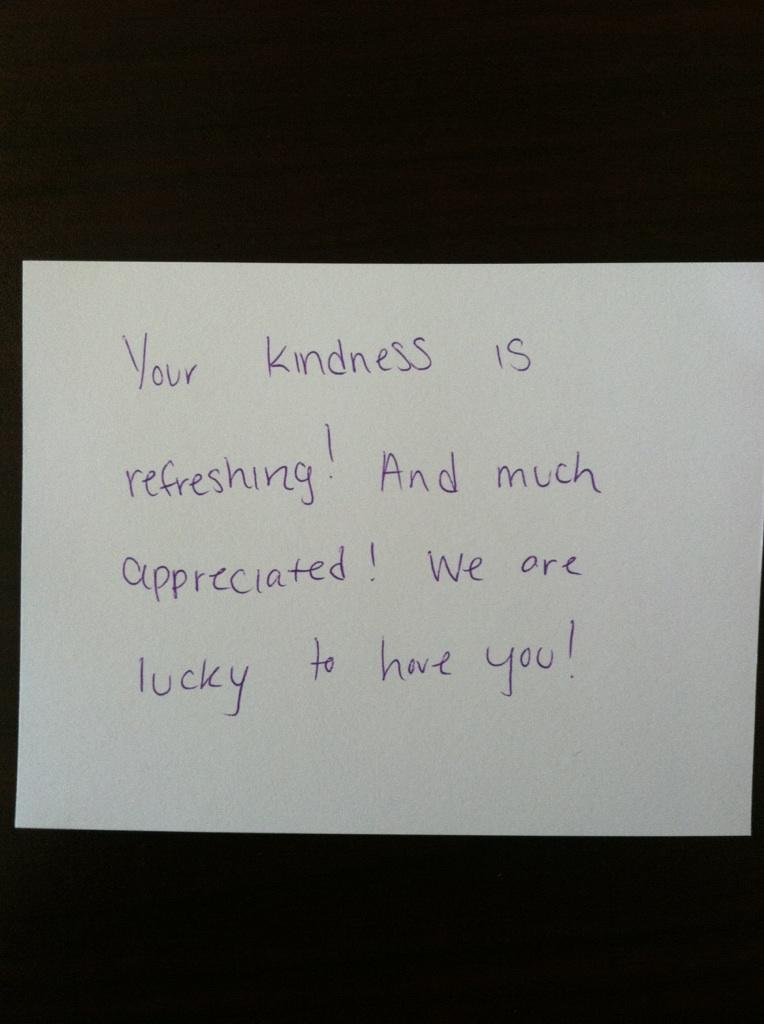 Your kindness is
refreshing! And much
appreciated! We are
lucky to have you!